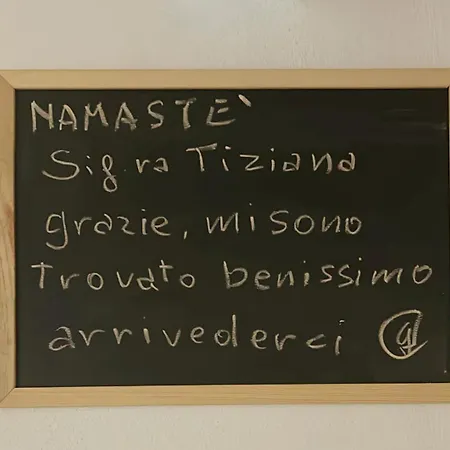 NAMASTE`
Sig.ra Tiziana
grazie, mi sono
Trovato benissimo
arrivederci